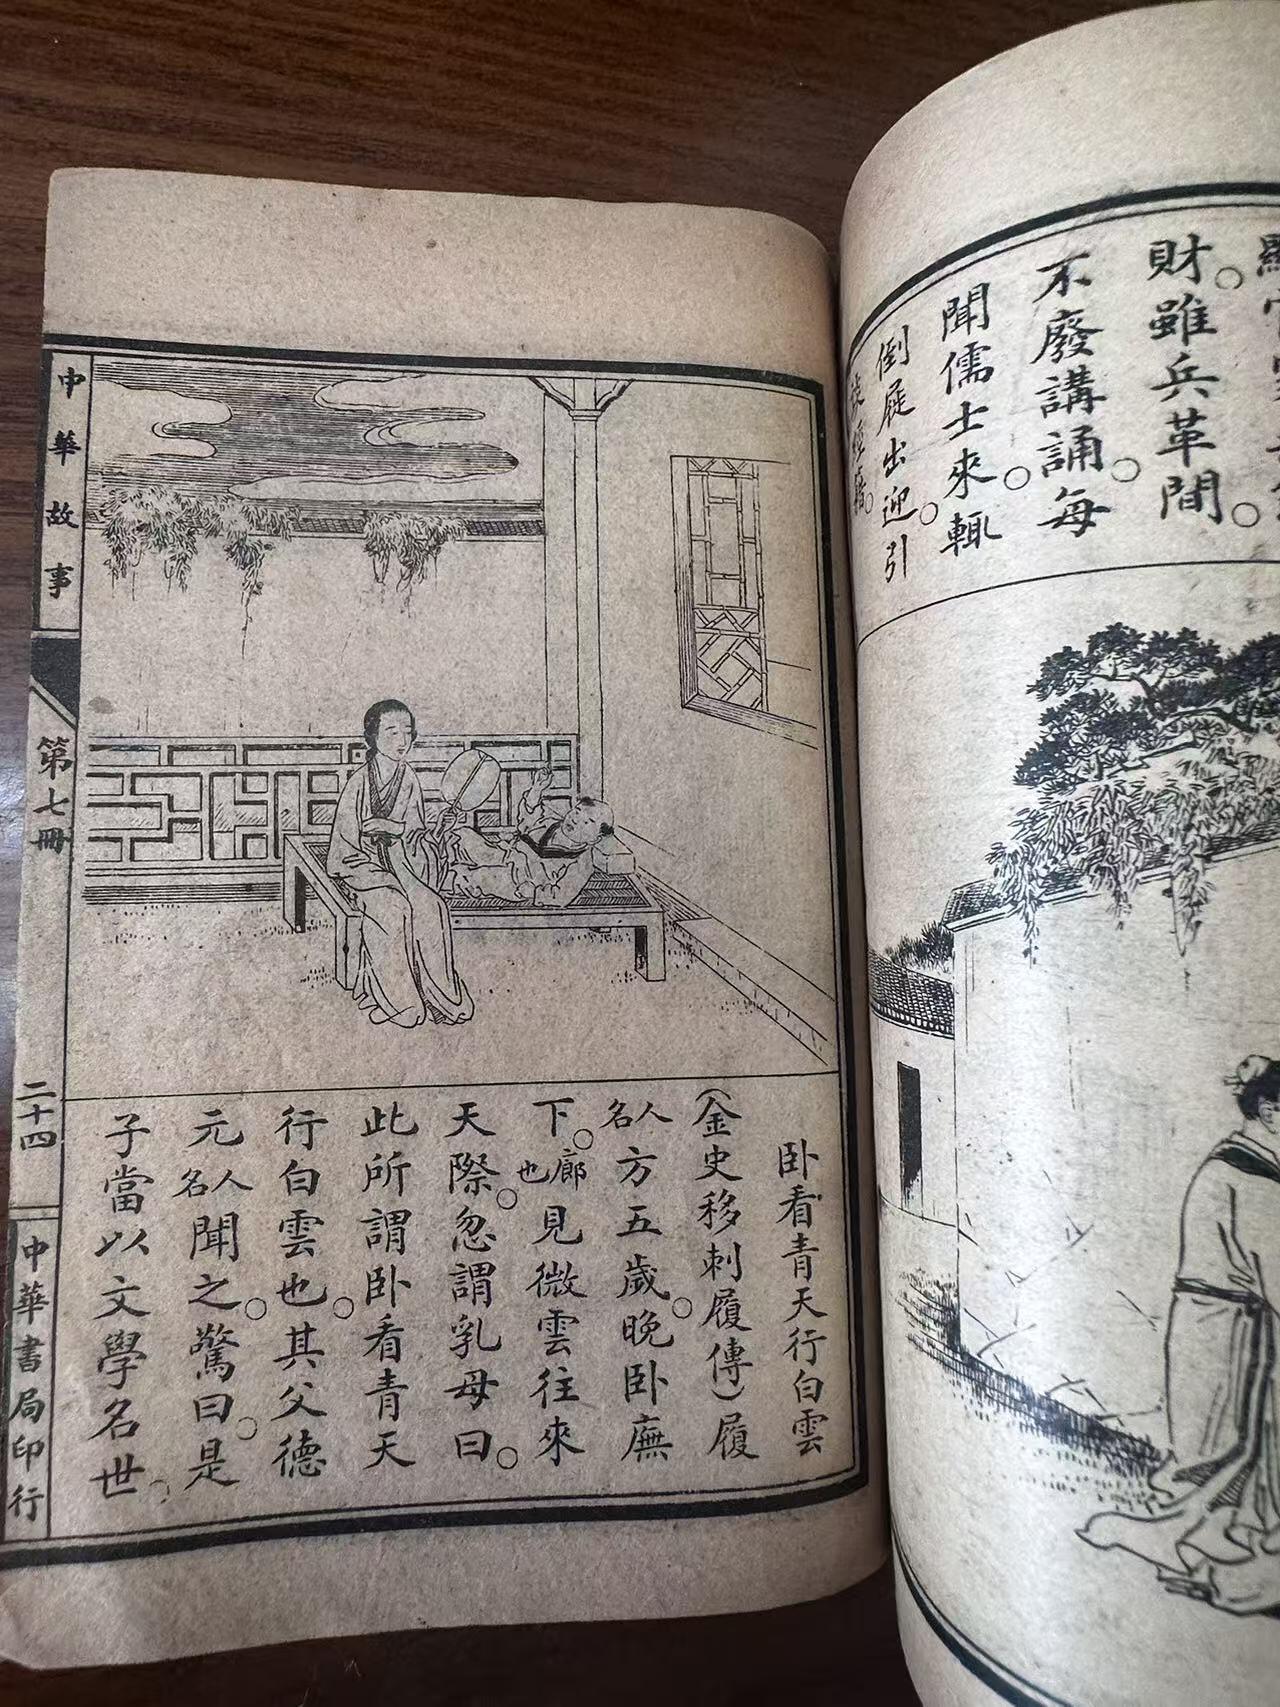 財。雖兵革間。
不廢講誦。每
聞儒士來。輒
倒屣出迎。引
經籍。
卧看青天行白雲
(金史移刺履傳)履
人名方五歲。晚卧廡
下。廊也見微雲往來
天際。忽謂乳母曰。
此所謂卧看青天
行白雲也。其父德
元人名聞之。驚曰。是
子當以文學名世。
中華故事
第七冊
二十四
中華書局印行